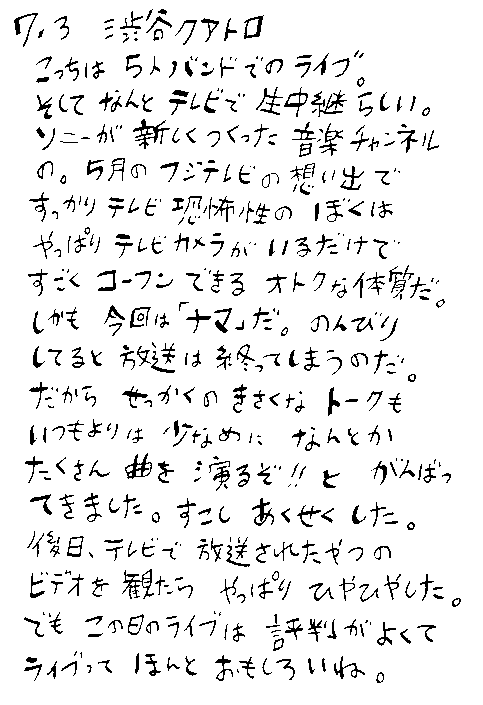 7.3 渋谷クアトロ
こっちは 5人バンドでの ライブ。
そして なんと テレビで 生中継らしい。
ソニーが 新しくつくった 音楽チャンネル
の。5月の フジテレビの 想い出で
すっかり テレビ 恐怖性の ぼくは
やっぱり テレビカメラが いるだけで
すごく コーフン できる オトクな体質だ。
しかも 今回は「ナマ」だ。のんびり
してると 放送は 終ってしまうのだ。
だから せっかくの きさくな トークも
いつもよりは 少なめに なんとか
たくさん 曲を 演るぞ!! と がんばっ
てきました。すこし あくせく した。
後日、テレビで 放送されたやつの
ビデオを 観たら やっぱり ひやひやした。
でも この日のライブは 評判がよくて
ライブって ほんと おもしろいね。